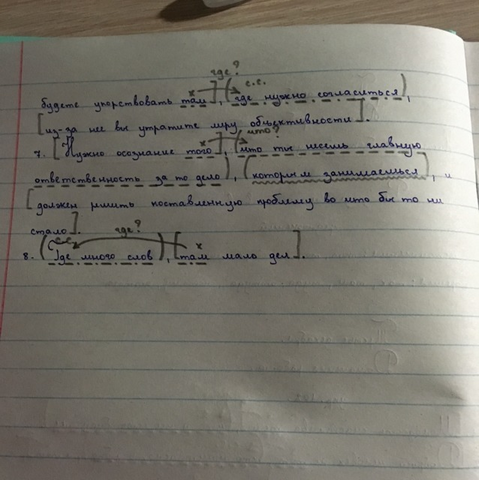 где?
х с.с.
будете упорствовать там], (где нужно согласиться),
[из-за нее вы утратите меру объективности].
х что?
7. [Нужно осознание того], (что ты несешь главную
ответственность за то дело), (которым занимаешься), и
[должен решить поставленную проблему во что бы то ни
стало].
с.с. где? х
8. (Где много слов), [там мало дел].